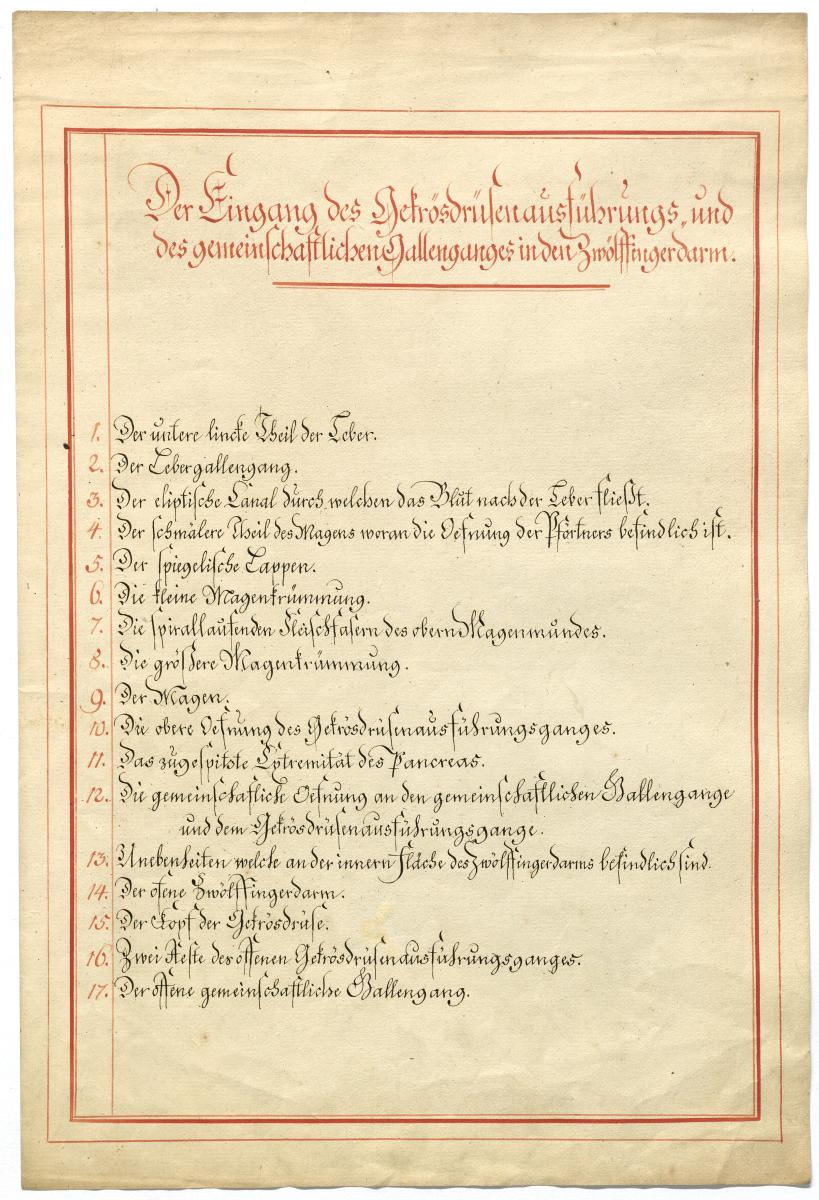 Der Eingang des Gekrösdrüsenausführungs- und
des gemeinschaftlichen Gallenganges in den Zwölffingerdarm.
1. Der untere lincke Theil der Leber.
2. Der Lebergallengang.
3. Der eliptische Canal durch welchen das Blut nach der Leber fließt.
4. Der schmälere Theil des Magens woran die Oefnung der Pförtners befindlich ist.
5. Der spiegelische Lappen.
6. Die kleine Magenkrümmung.
7. Die spirallaufenden Fleischfasern des obern Magenmundes.
8. Die größere Magenkrümmung.
9. Der Magen.
10. Die obere Oefnung des Gekrösdrüsenausführungsganges.
11. Das zugespitste Extremität des Pancreas.
12. Die gemeinschafliche Oefnung an den gemeinschaftlichen Gallengange
und dem Gekrösdrüsenausführungsgange.
13. Unebenheiten welche an der innern Fläche des Zwölffingerdarms befindlich sind.
14. Der ofene Zwölffingerdarm.
15. Der Kopf der Gekrösdrüse.
16. Zwei Aeste des offenen Gekrösdrüsenausführungsganges.
17. Der offene gemeinschaftliche Gallengang.